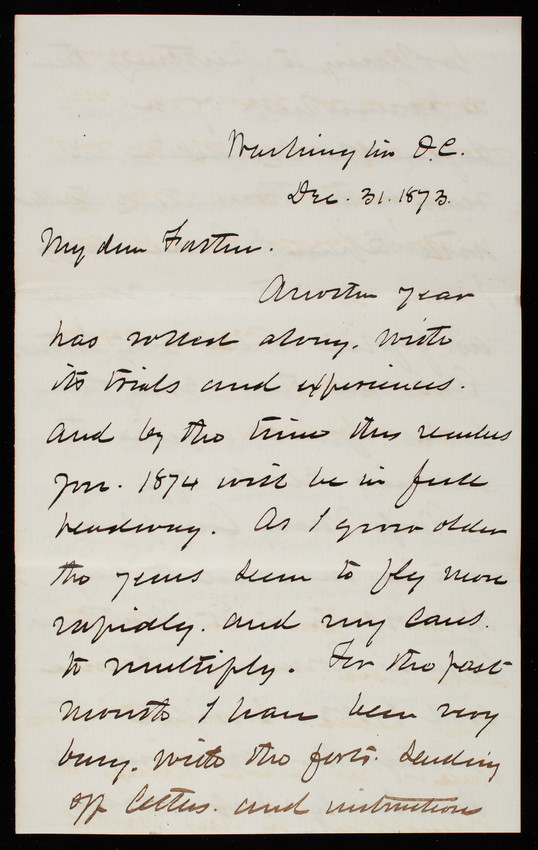 Washington D.C.
Dec. 31. 1873.
My dear Father.
Another year
has rolled along. with
its trials and experiences.
and by the time this reaches
you. 1874 will be in full
headway. As I grow older
the years seem to fly more
rapidly. and my cares.
to multiply. For the past
month I have been very
busy. with the forts. sending
off letters. and instructions